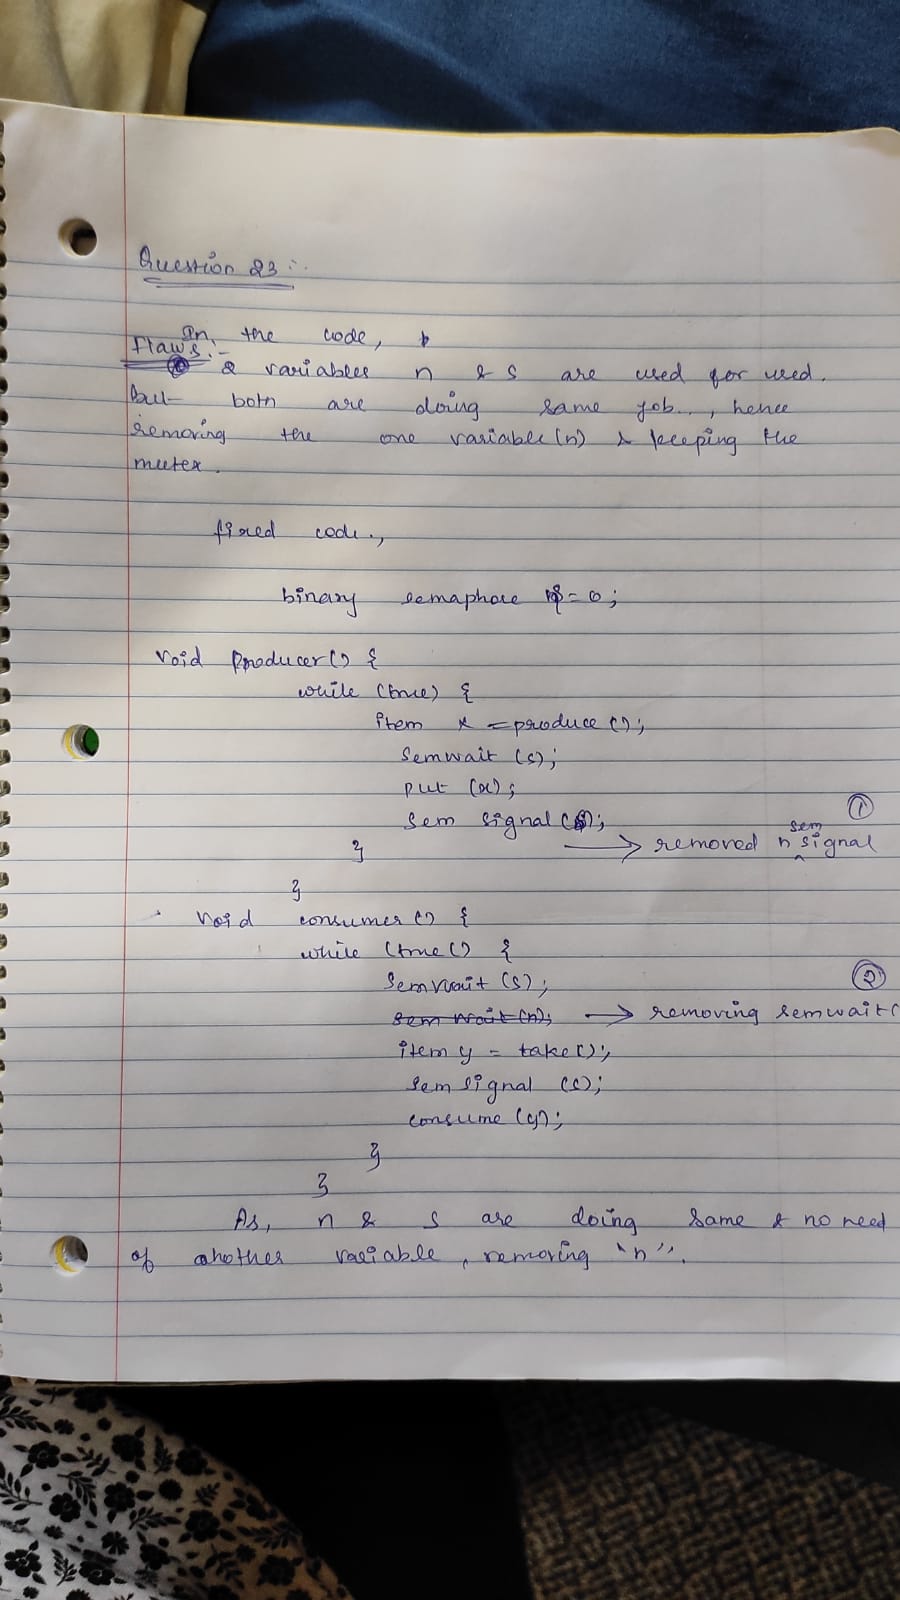 Question 23 :-
In the code,
Flaws :-
2 variables n & s are used for used.
but both are doing same job.., hence
removing the one variable (n) & keeping the
mutex.
fixed code.,
binary semaphore = 0;
void producer() {
while (true) {
item x = produce ();
Semwait (s);
put (x);
Sem signal (s);
①
→ removed n sem signal
}
}
void consumer () {
while (true() {
Semwait (s);
②
sem wait (n); → removing semwait(
item y = take();
Sem signal (s);
consume (y);
}
}
As, n & s are doing same & no need
of another variable, removing "n".